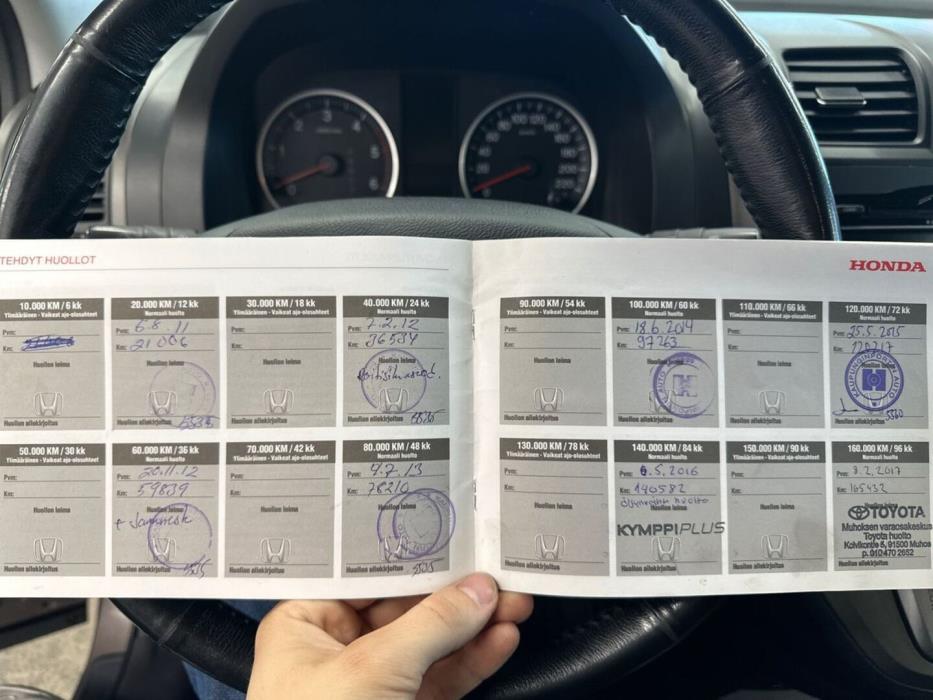 TEHDYT HUOLLOT
HONDA
10.000 KM / 6 kk
Ylimääräinen - Vaikeat ajo-olosuhteet
Pvm:
Km:
Huollon leima
Huollon allekirjoitus
20.000 KM / 12 kk
Normaali huolto
Pvm: 6.8.11
Km: 21006
Huollon allekirjoitus
30.000 KM / 18 kk
Ylimääräinen - Vaikeat ajo-olosuhteet
Pvm:
Km:
Huollon leima
Huollon allekirjoitus
40.000 KM / 24 kk
Normaali huolto
Pvm: 7.2.12
Km: 36534
Huollon leima
Huollon allekirjoitus
90.000 KM / 54 kk
Ylimääräinen - Vaikeat ajo-olosuhteet
Pvm:
Km:
Huollon leima
Huollon allekirjoitus
100.000 KM / 60 kk
Normaali huolto
Pvm: 18.6.2014
Km: 97263
Huollon leima
Huollon allekirjoitus
110.000 KM / 66 kk
Ylimääräinen - Vaikeat ajo-olosuhteet
Pvm:
Km:
Huollon leima
Huollon allekirjoitus
120.000 KM / 72 kk
Normaali huolto
Pvm: 25.5.2015
Km: 120217
KAUPUNGINPORTIN AUTO
Huollon allekirjoitus 5360
50.000 KM / 30 kk
Ylimääräinen - Vaikeat ajo-olosuhteet
Pvm:
Km:
Huollon leima
Huollon allekirjoitus
60.000 KM / 36 kk
Normaali huolto
Pvm: 20.11.12
Km: 59839
Huollon leima
Huollon allekirjoitus
70.000 KM / 42 kk
Ylimääräinen - Vaikeat ajo-olosuhteet
Pvm:
Km:
Huollon leima
Huollon allekirjoitus
80.000 KM / 48 kk
Normaali huolto
Pvm: 4.7.13
Km: 78210
Huollon leima
Huollon allekirjoitus
130.000 KM / 78 kk
Ylimääräinen - Vaikeat ajo-olosuhteet
Pvm:
Km:
Huollon leima
Huollon allekirjoitus
140.000 KM / 84 kk
Normaali huolto
Pvm: 6.5.2016
Km: 140582
huolto
KYMPPIPLUS
Huollon allekirjoitus
150.000 KM / 90 kk
Ylimääräinen - Vaikeat ajo-olosuhteet
Pvm:
Km:
Huollon leima
Huollon allekirjoitus
160.000 KM / 96 kk
Normaali huolto
Pvm: 3.2.2017
Km: 165432
TOYOTA
Muhoksen varaosakeskus
Toyota huolto
Koivikontie 5, 91500 Muhos
p. 010 470 2652
Huollon allekirjoitus